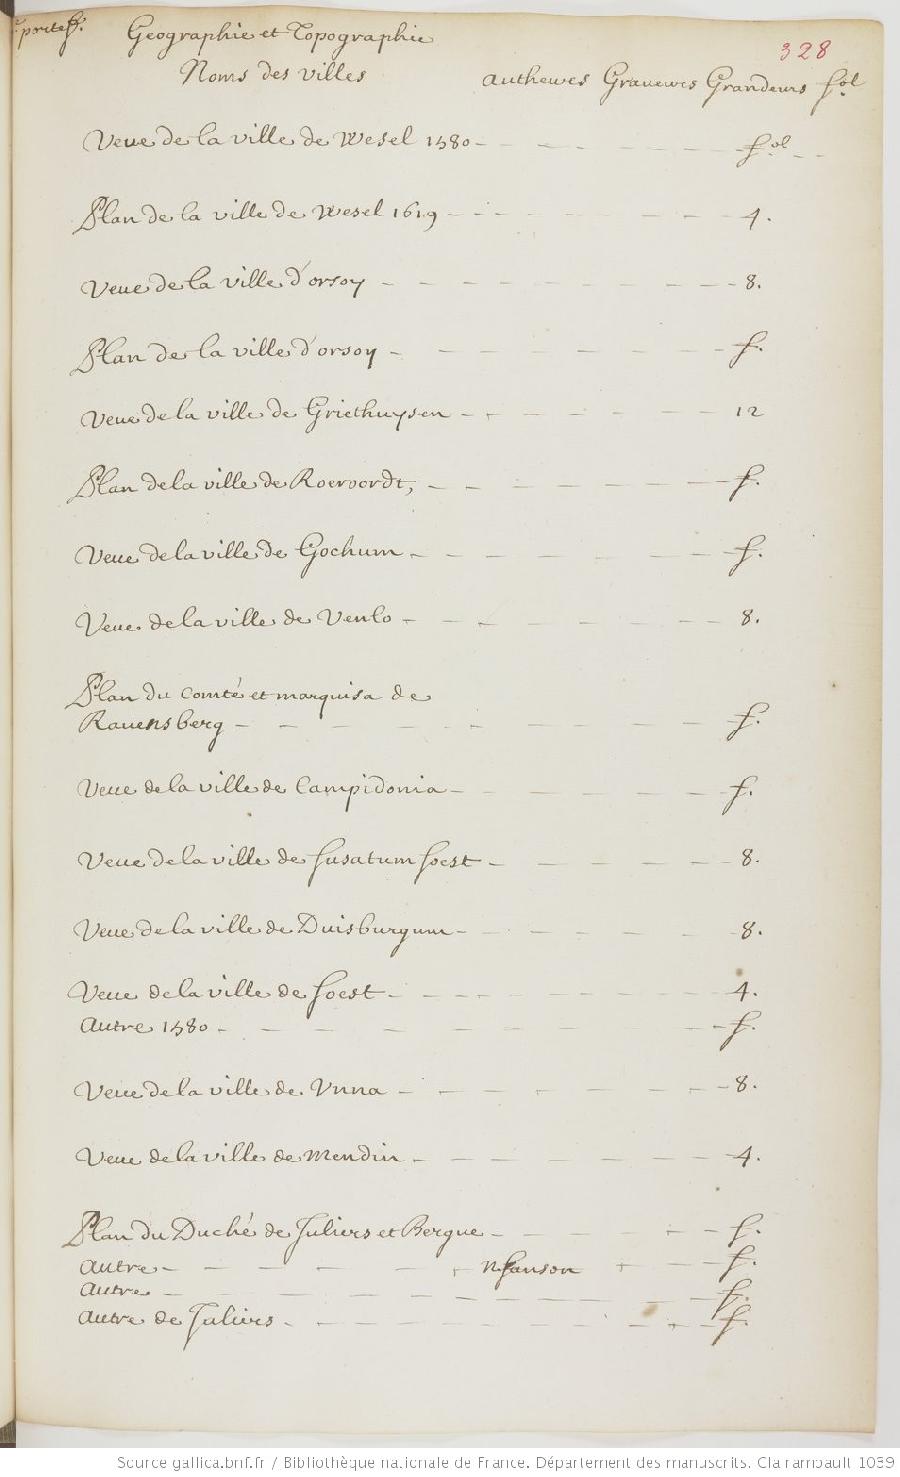 portef.
328
Geographie et Topographie
Noms des villes autheures Graueures Grandeurs fol
Veue de la ville de Wesel 1580 fol
Plan de la ville de Wesel 1619 4.
Veue de la ville d'orsoy 8.
Plan de la ville d'orsoy f.
Veue de la ville de Griethuysen 12
Plan de la ville de Roeroordt, f.
Veue de la ville de Gochum f.
Veue de la ville de Venlo 8.
Plan du Comté et marquisa de
Rauensberg f.
Veue de la ville de Campidonia f.
Veue de la ville de Susatum Soest 8.
Veue de la ville de Duisburgum 8.
Veue de la ville de Soest 4.
autre 1580 f.
Veue de la ville de Vnna 8.
Veue de la ville de Mendin 4.
Plan du Duché de Juliers et Bergue f.
autre n Sanson f.
autre f.
autre de Juliers f.
Source gallica.bnf.fr / Bibliothèque nationale de France. Département des manuscrits. Clairambault 1039